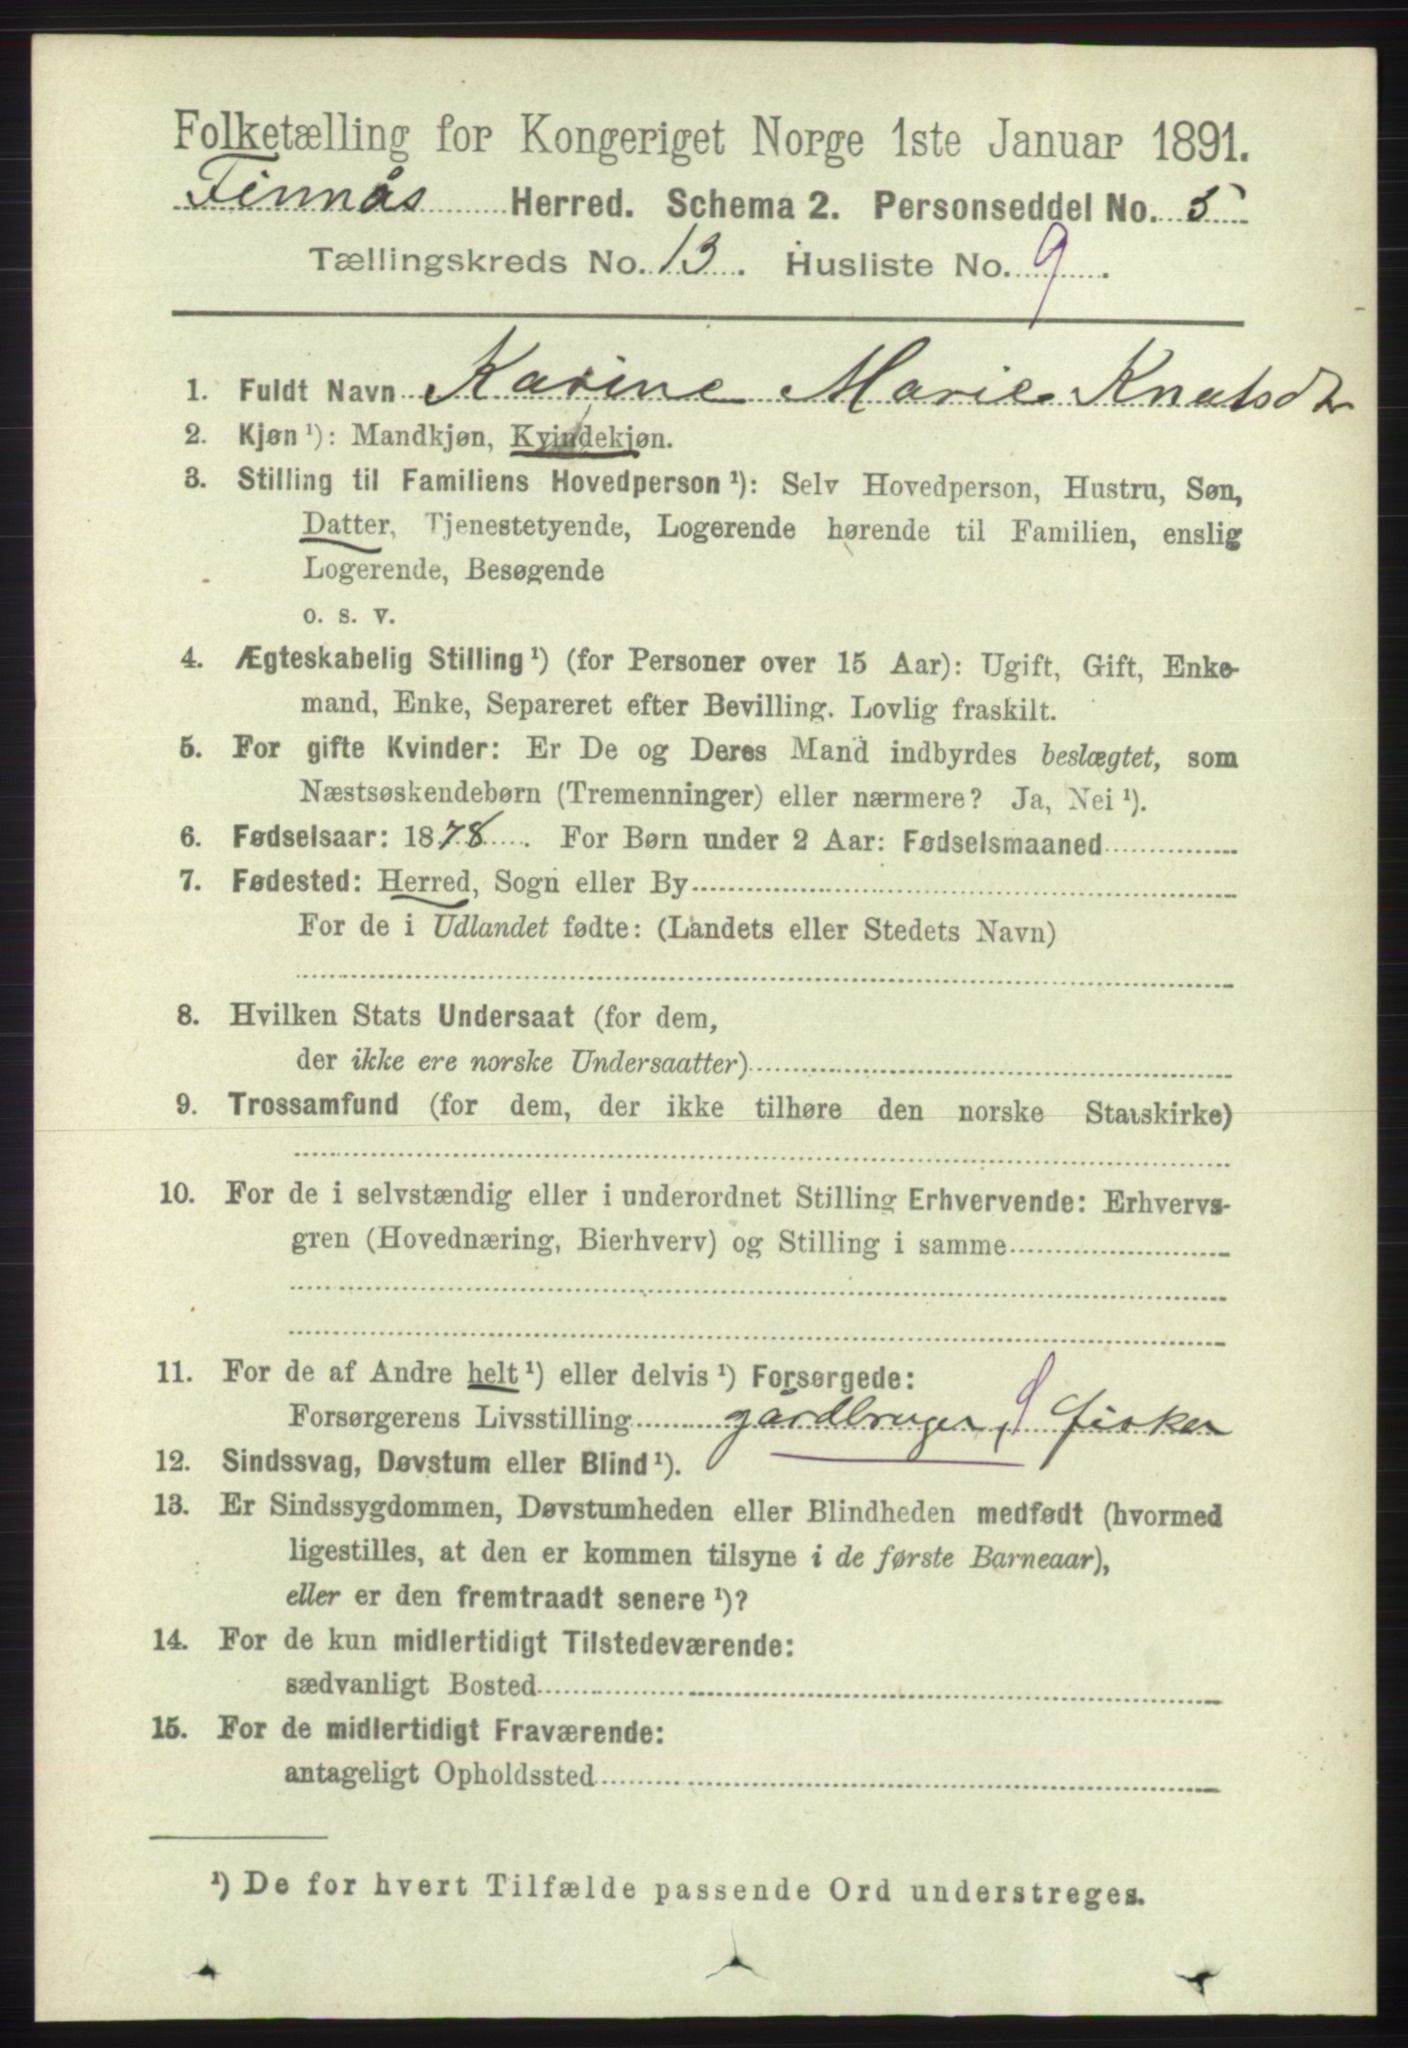 Folketælling for Kongeriget Norge 1ste Januar 1891.
Finnås Herred. Schema 2. Personseddel No. 5
Tællingskreds No. 13. Husliste No. 9.
1. Fuldt Navn Karine Marie Knutsdtr
2. Kjøn ¹): Mandkjøn, Kvindekjøn.
3. Stilling til Familiens Hovedperson ¹): Selv Hovedperson, Hustru, Søn,
Datter, Tjenestetyende, Logerende hørende til Familien, enslig
Logerende, Besøgende
o. s. v.
4. Ægteskabelig Stilling ¹) (for Personer over 15 Aar): Ugift, Gift, Enke-
mand, Enke, Separeret efter Bevilling. Lovlig fraskilt.
5. For gifte Kvinder: Er De og Deres Mand indbyrdes beslægtet, som
Næstsøskendebørn (Tremenninger) eller nærmere? Ja, Nei ¹).
6. Fødselsaar: 1878. For Børn under 2 Aar: Fødselsmaaned
7. Fødested: Herred, Sogn eller By
For de i Udlandet fødte: (Landets eller Stedets Navn)
8. Hvilken Stats Undersaat (for dem,
der ikke ere norske Undersaatter)
9. Trossamfund (for dem, der ikke tilhøre den norske Statskirke)
10. For de i selvstændig eller i underordnet Stilling Erhvervende: Erhvervs-
gren (Hovednæring, Bierhverv) og Stilling i samme
11. For de af Andre helt ¹) eller delvis ¹) Forsørgede:
Forsørgerens Livsstilling gårdbruger, fisker
12. Sindssvag, Døvstum eller Blind ¹).
13. Er Sindssygdommen, Døvstumheden eller Blindheden medfødt (hvormed
ligestilles, at den er kommen tilsyne i de første Barneaar),
eller er den fremtraadt senere ¹)?
14. For de kun midlertidigt Tilstedeværende:
sædvanligt Bosted
15. For de midlertidigt Fraværende:
antageligt Opholdssted
¹) De for hvert Tilfælde passende Ord understreges.